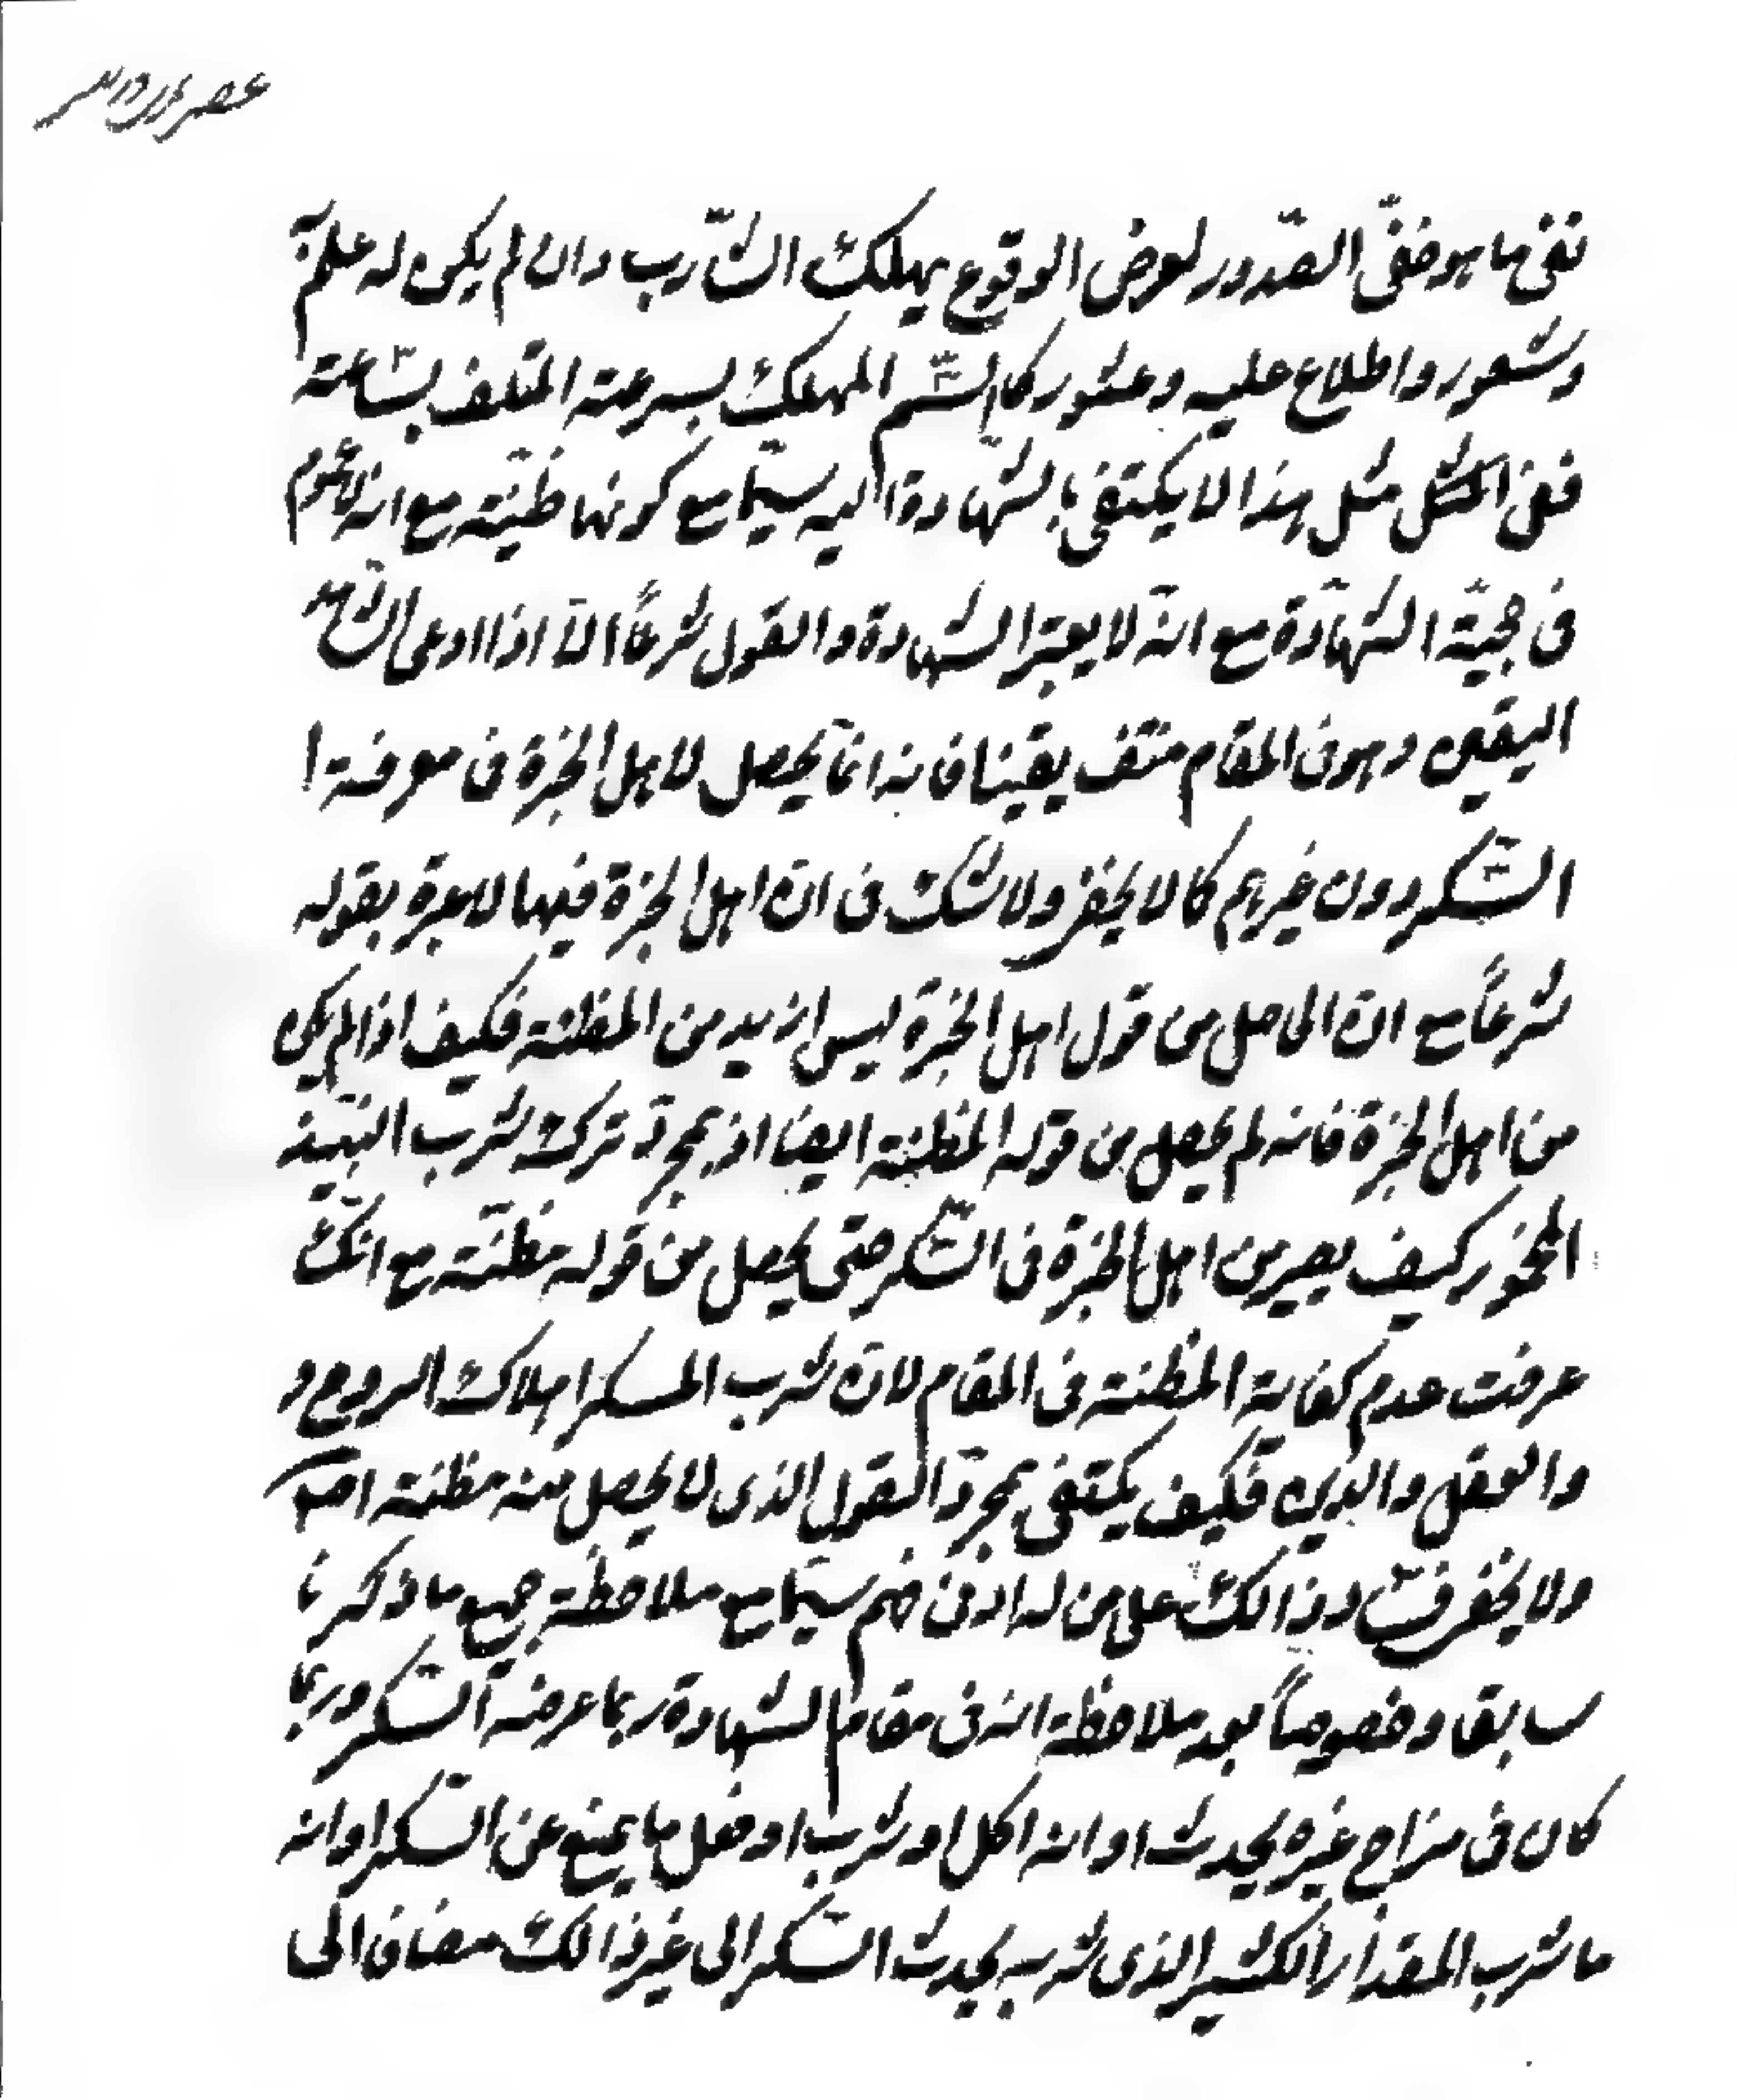 نفى ما هو خفىّ الصّدور لعرض الوقوع يهلك الشّارب وان لم يكن له علم به
وشعور واطلاع عليه وعثور كالسّم المهلك بسرعة المتلف بساعة
ففى مثل هذا لا يكتفى بالشّهادة اليه سيّما مع كونها ظنيّة مع انه لا عموم
فى حجيّة الشّهادة مع انّه لا يعتبر الشهادة والقول شرعًا الّا اذا ادعى الشاهد
اليقين وهو فى المقام منتف يقينا فانه انّما يحصل لاهل الخبرة فى معرفة ا
السّكر دون غيرهم كما لا يخفى ولا شك فى انّ اهل الخبرة فيها لا عبرة بقوله
شرعًا مع انّ الحاصل من قول اهل الخبرة ليس ازيد من المظنّة فكيف اذا لم يكن
من اهل الخبرة فانه لم يحصل من قوله المظنة ايضا اذ بمجرّد ترك شرب النبيذ
المخمور كيف يصير من اهل الخبرة فى السّكر حتى يحصل من قوله مظنّة مع انّك
عرفت عدم كفاية المظنة فى المقام لانّ شرب المسكر اهلاك الروح و
والعقل والدين فكيف يكتفى بمجرّد القول الذى لا يحصل منه مظنة اصلا
ولا يخفى فساد ذالك على من له ادنى فهم سيّما مع ملاحظة جميع ما ذكرنا
سابقا وخصوصاً بعد ملاحظة انه فى مقام الشهادة ربما عرضه السّكر وربما
كان فى مزاج غيره يحدث او انه اكل او شرب او فعل ما يمنع عن السّكر او انه
ما شرب المقدار الكثير الذى شربه يحدث السّكر الى غير ذالك مضافا الى